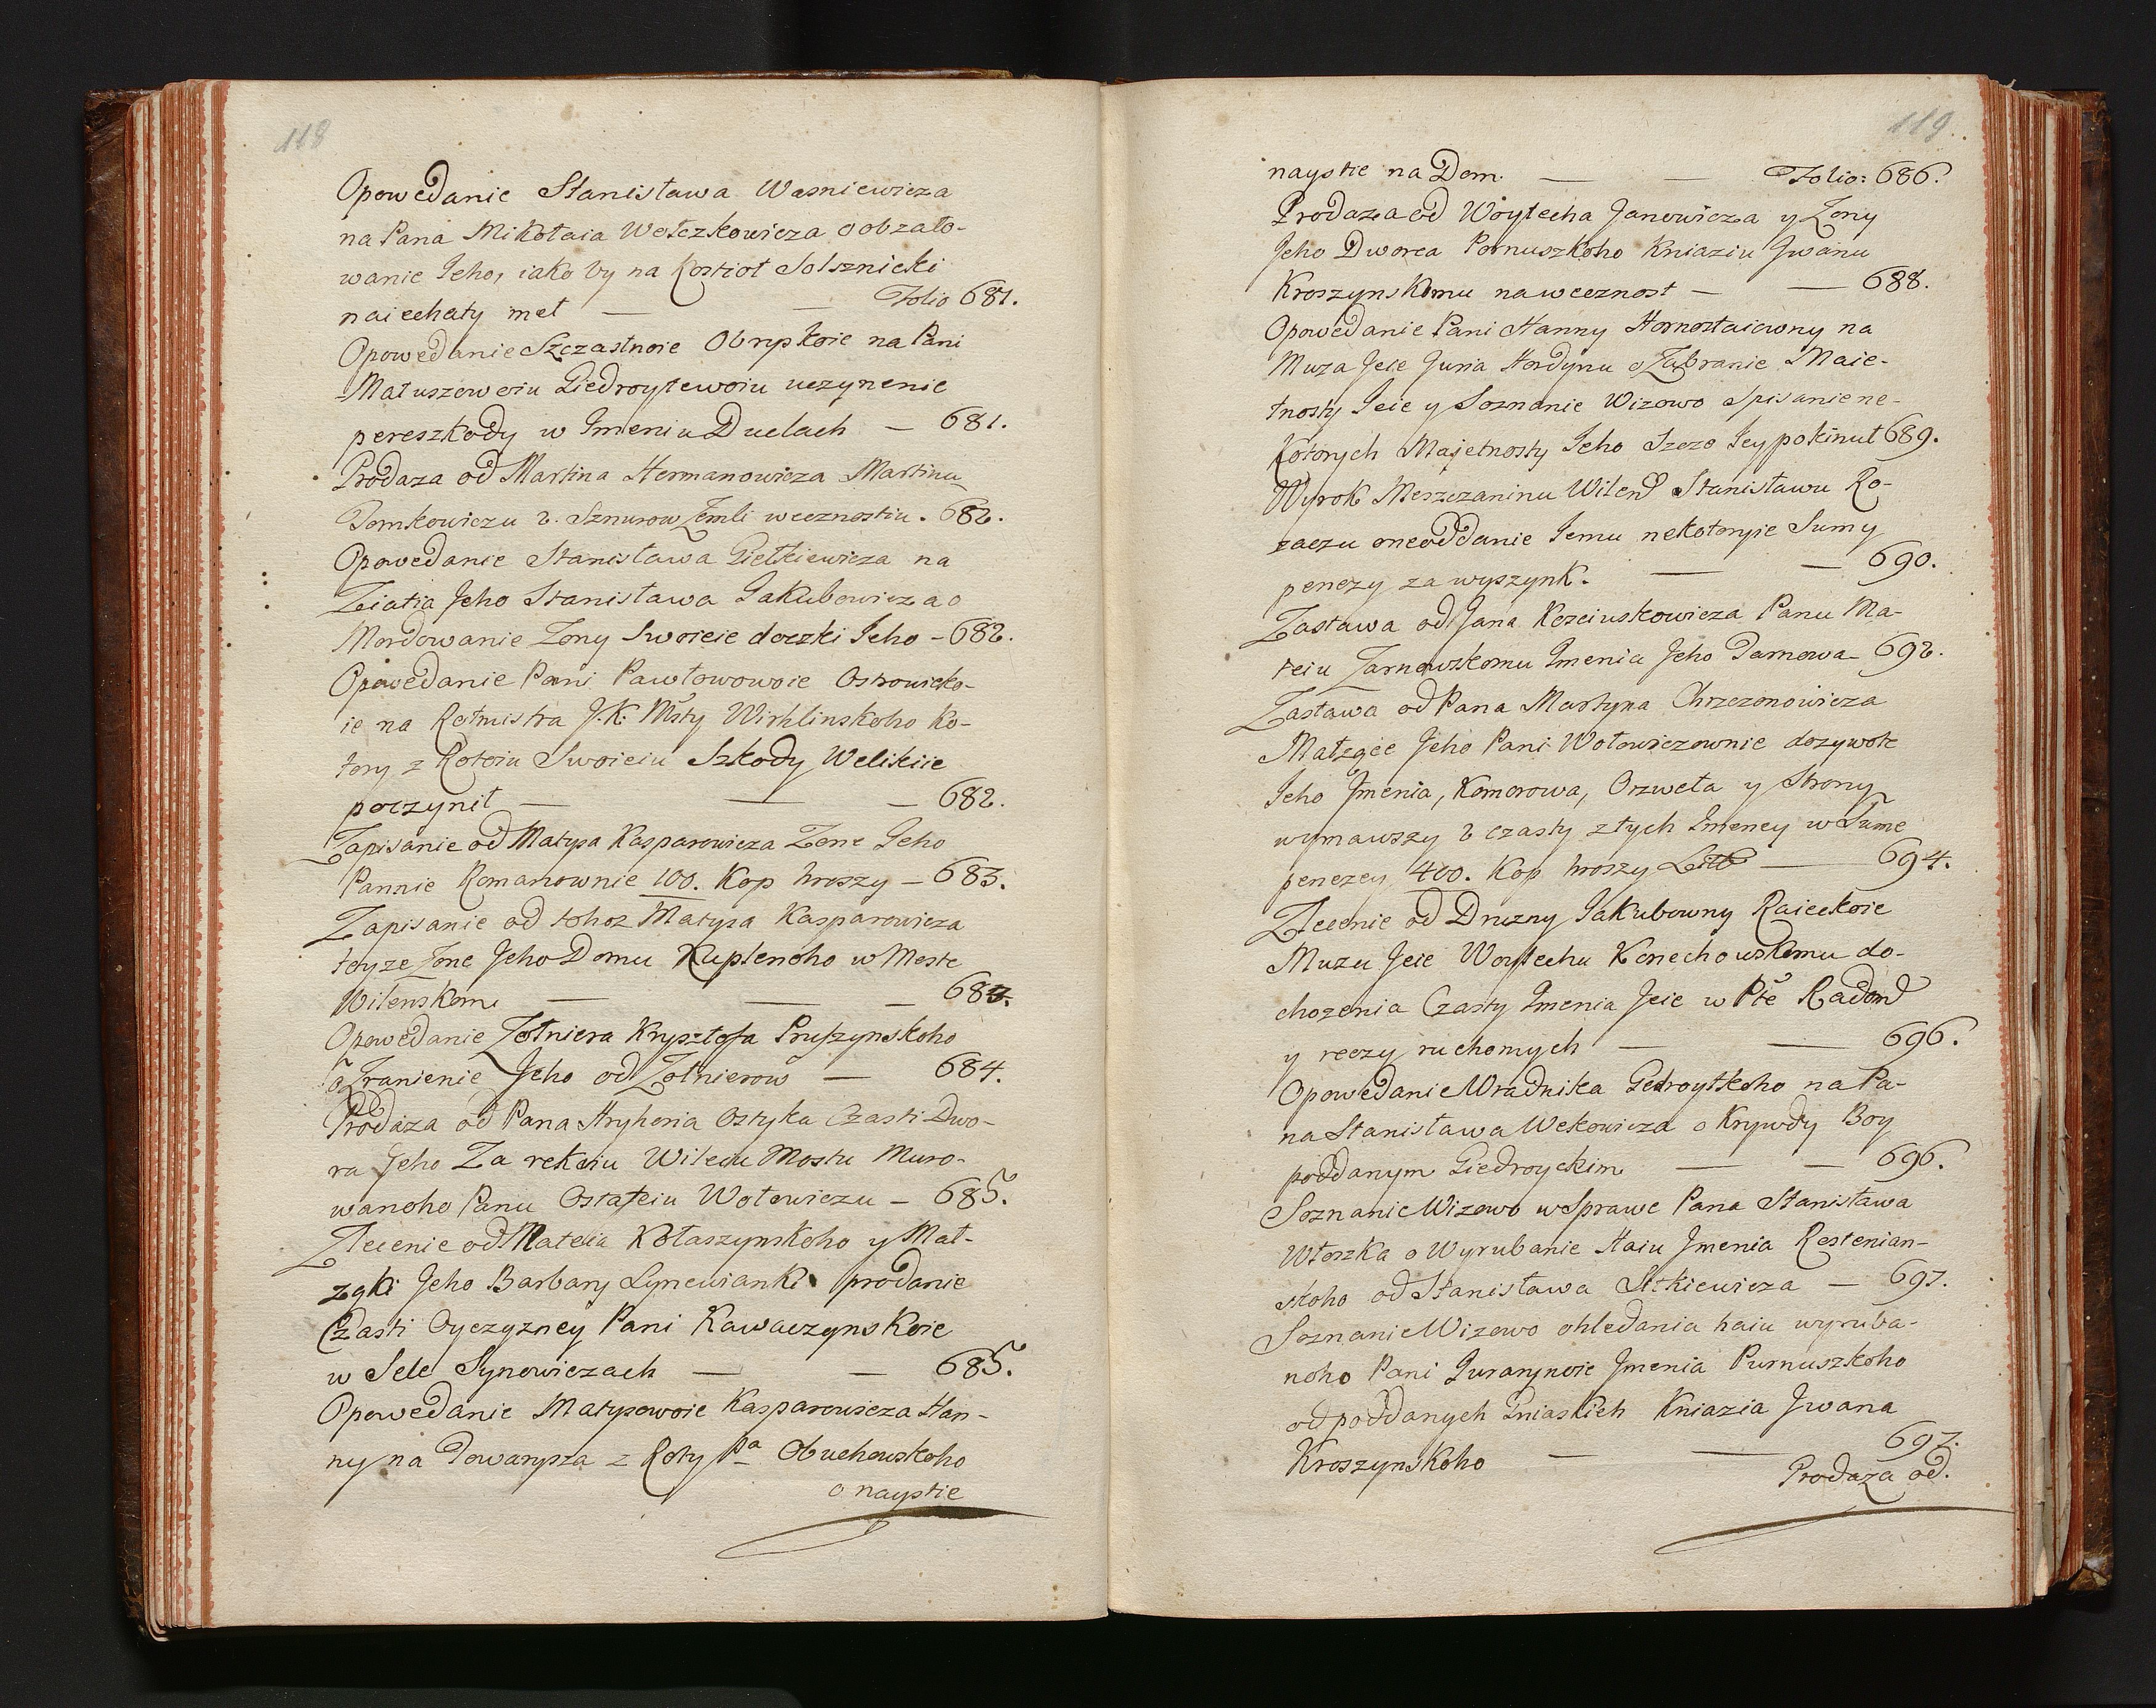 118
Opowedanie Stanisława Wasniewicza
na Pana Mikołaia Wołczkowicza o obzało-
wanie Jeho, iako by na Kostioł Solsznicki
naiechaty meł — — Folio 681.
Opowedanie Szczastnoie Obrypskoie na Pani
Matuszowoiu Giedroytewoiu uczynenie
pereszkody w Imeniu Duelach — 681.
Prodaza od Martina Hermanowicza Martinu
Tomkowiczu 2. Sznurow Zemli wecznostiu. 682.
Opowedanie Stanisława Giełkiewicza na
Ziatia Jeho Stanisława Jakubowicza o
Mordowanie Zony Swoieie doczki Jeho — 682.
Opowedanie Pani Pawłowowoie Ostrowicko-
ie na Rotmistra J. K. Msty Wirhlinskoho Ko-
tory z Rotoiu Swoieiu Szkody Welikiie
poczynił — — — 682.
Zapisanie od Matysa Kasparowicza Zene Jeho
Pannie Romanownie 100. Kop hroszy — 683.
Zapisanie od tohoz Matysa Kasparowicza
teyze Zone Jeho Domu Kuplenoho w Meste
Wilenskom — — — 683.
Opowedanie Zołniera Krysztofa Pruszynskoho
o Zranienie Jeho od Zołnierow — 684.
Prodaza od Pana Hryhoria Ostyka Czasti Dwo-
ra Jeho Za rekoiu Wileiu Mostu Muro-
wanoho Panu Ostafeiu Wołowiczu — 685.
Zlecenie od Mateia Kołaszynskoho y Mał-
zgki Jeho Barbary Lynewianki prodanie
Czasti Oyczyzney Pani Kawaczynskoie
w Sele Synowiczach — — 685.
Opowedanie Matysowoie Kasparowicza Han-
ny na Towarysza z Roty Pa Obuchowskoho
o naystie
119
naystie na Dom. — — Folio: 686.
Prodaza od Woytecha Janowicza y Zony
Jeho Dworca Pornuszkoho Kniaziu Jwanu
Kroszynskomu na wecznost — — 688.
Opowedanie Pani Hanny Hornostaiowny na
Muza Jeie Juria Hordynu o Zabranie Maie-
tnosty Jeie y Soznanie Wizowo Spisanie ne-
Kotorych Majetnosty Jeho Szczo Jey pokinuł 689.
Wyrok Meszczaninu Wilend Stanisławu Ro-
zaczu oneoddanie Jemu nekotoryie Sumy
penezy za wyszynk. — — 690.
Zastawa od Jana Korciuskowicza Panu Ma-
teiu Tarnowskomu Imenia Jeho Tarnowa — 692.
Zastawa od Pana Martyna Chrzczonowicza
Małzgce Jeho Pani Wołowiczownie dozywote
Jeho Jmenia, Komorowa, Orzweta y Strony
wymawszy 2 czasty z tych Imeney w Sume
penezey 400. Kop hroszy Litt — 694.
Zlecenie od Druzny Jakubowny Raieckoie
Muzu Jeie Woytechu Konechowskomu do-
chozenia Czasty Imenia Jeie w Pte Radom
y reczy ruchomych — — 696.
Opowedanie Wradnika Gedroytskoho na Pa-
na Stanisława Wekowicza o Krywdy Boy
poddanym Giedroyckim — — 696.
Soznanie Wizowo w Sprawe Pana Stanisława
Włoszka o Wyrubanie Haiu Jmenia Restenian-
skoho od Stanisława Sitkiewicza — 697.
Soznanie Wizowo ohledania haiu wyruba-
noho Pani Juraynoie Jmenia Purnuszkoho
od poddanych Gniaskich Kniazia Jwana
Kroszynskoho — — 697.
Prodaza od.